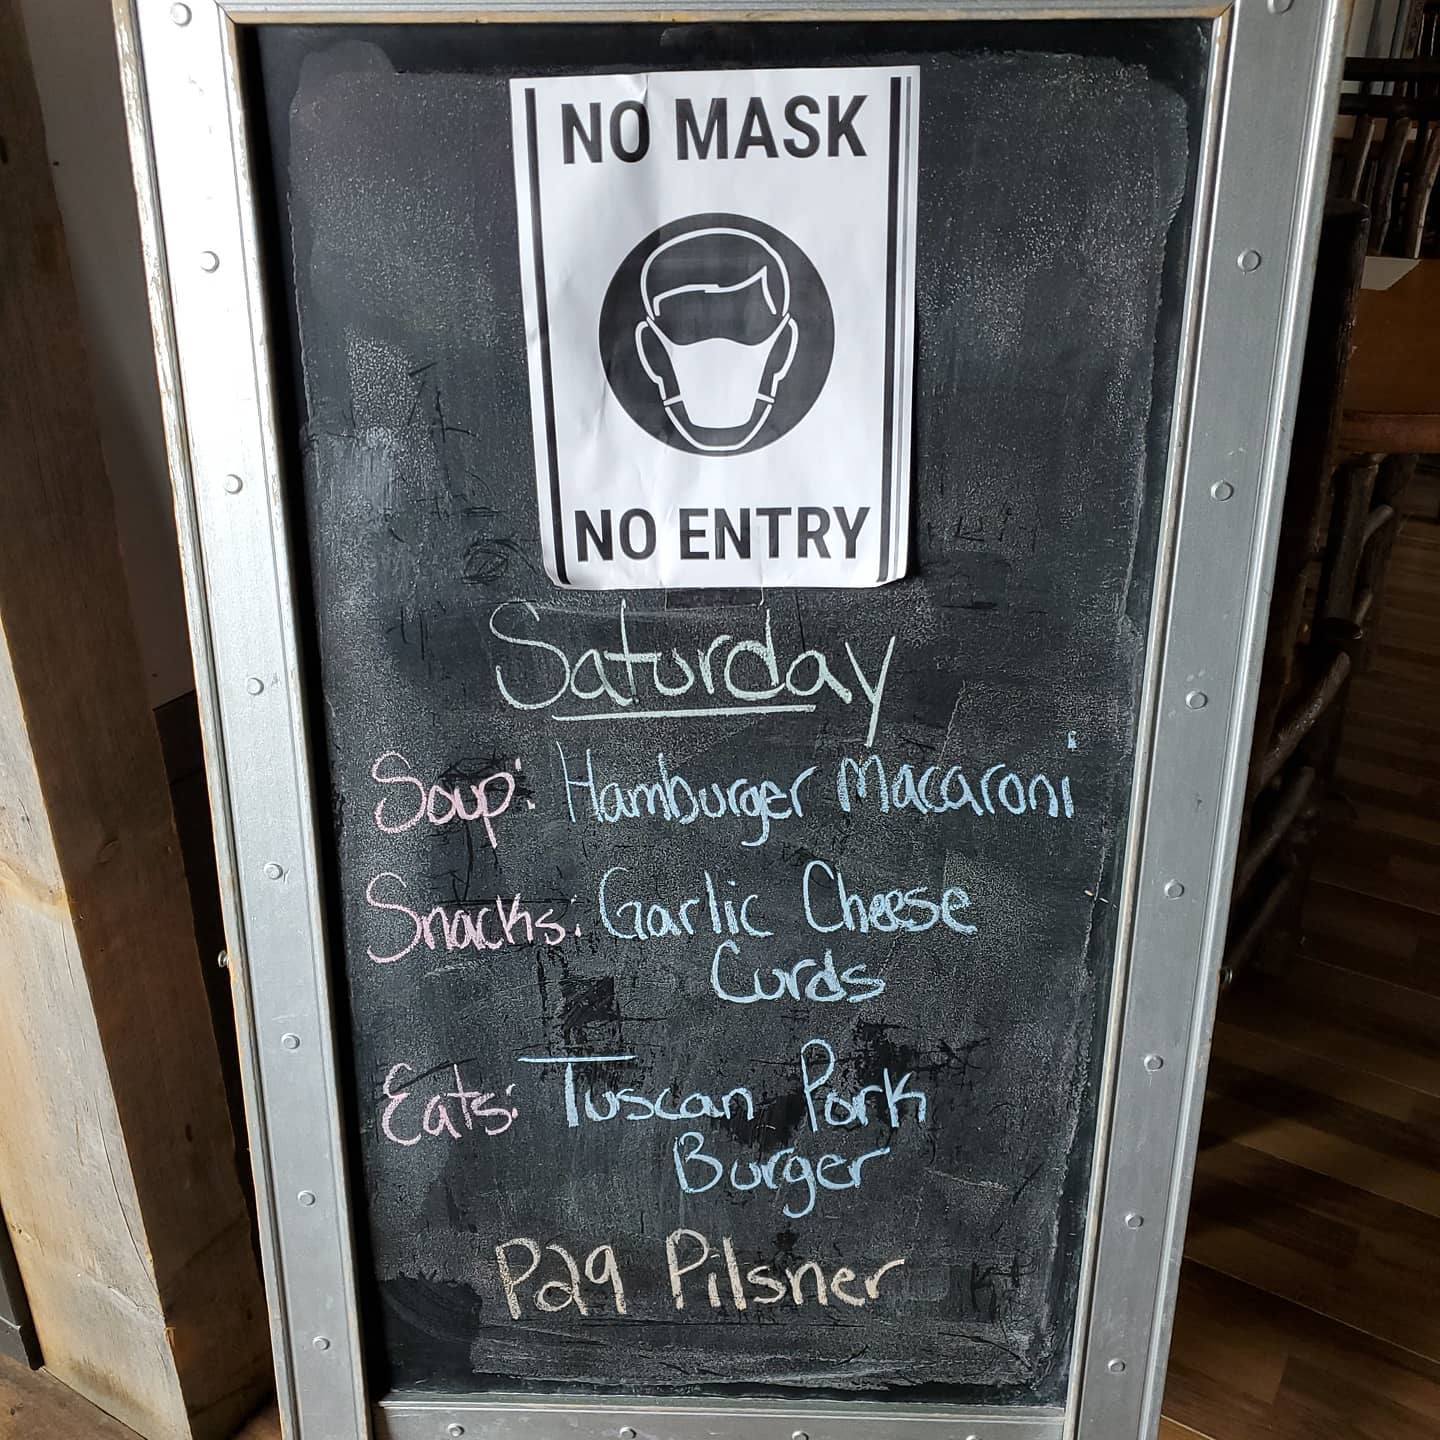 NO MASK
NO ENTRY
Saturday
Soup: Hamburger Macaroni
Snacks: Garlic Cheese
Curds
Eats: Tuscan Pork
Burger
P29 Pilsner